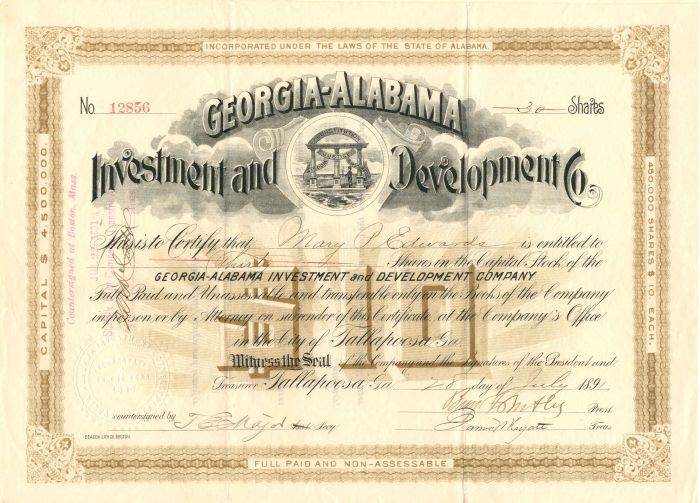 INCORPORATED UNDER THE LAWS OF THE STATE OF ALABAMA.
No. 12856
GEORGIA-ALABAMA
30 Shares
Investment and Development Co.
CAPITAL $4,500,000
450,000 SHARES $10 EACH.
Countersigned at Boston, Mass.
This is to Certify that Mary P Edwards is entitled to
Thirty Shares in the Capital Stock of the
GEORGIA-ALABAMA INVESTMENT and DEVELOPMENT COMPANY
Full Paid and Unassessable and transferable only on the Books of the Company
in person or by Attorney on surrender of this Certificate at the Company's Office
in the City of Tallapoosa Ga
$10
Witness the Seal of the Company and the Signatures of the President and
Treasurer Tallapoosa Ga 28 day of July 1891
Prest.
countersigned by Secy
Treas
BEACON LITH. CO. BOSTON.
FULL PAID AND NON-ASSESSABLE